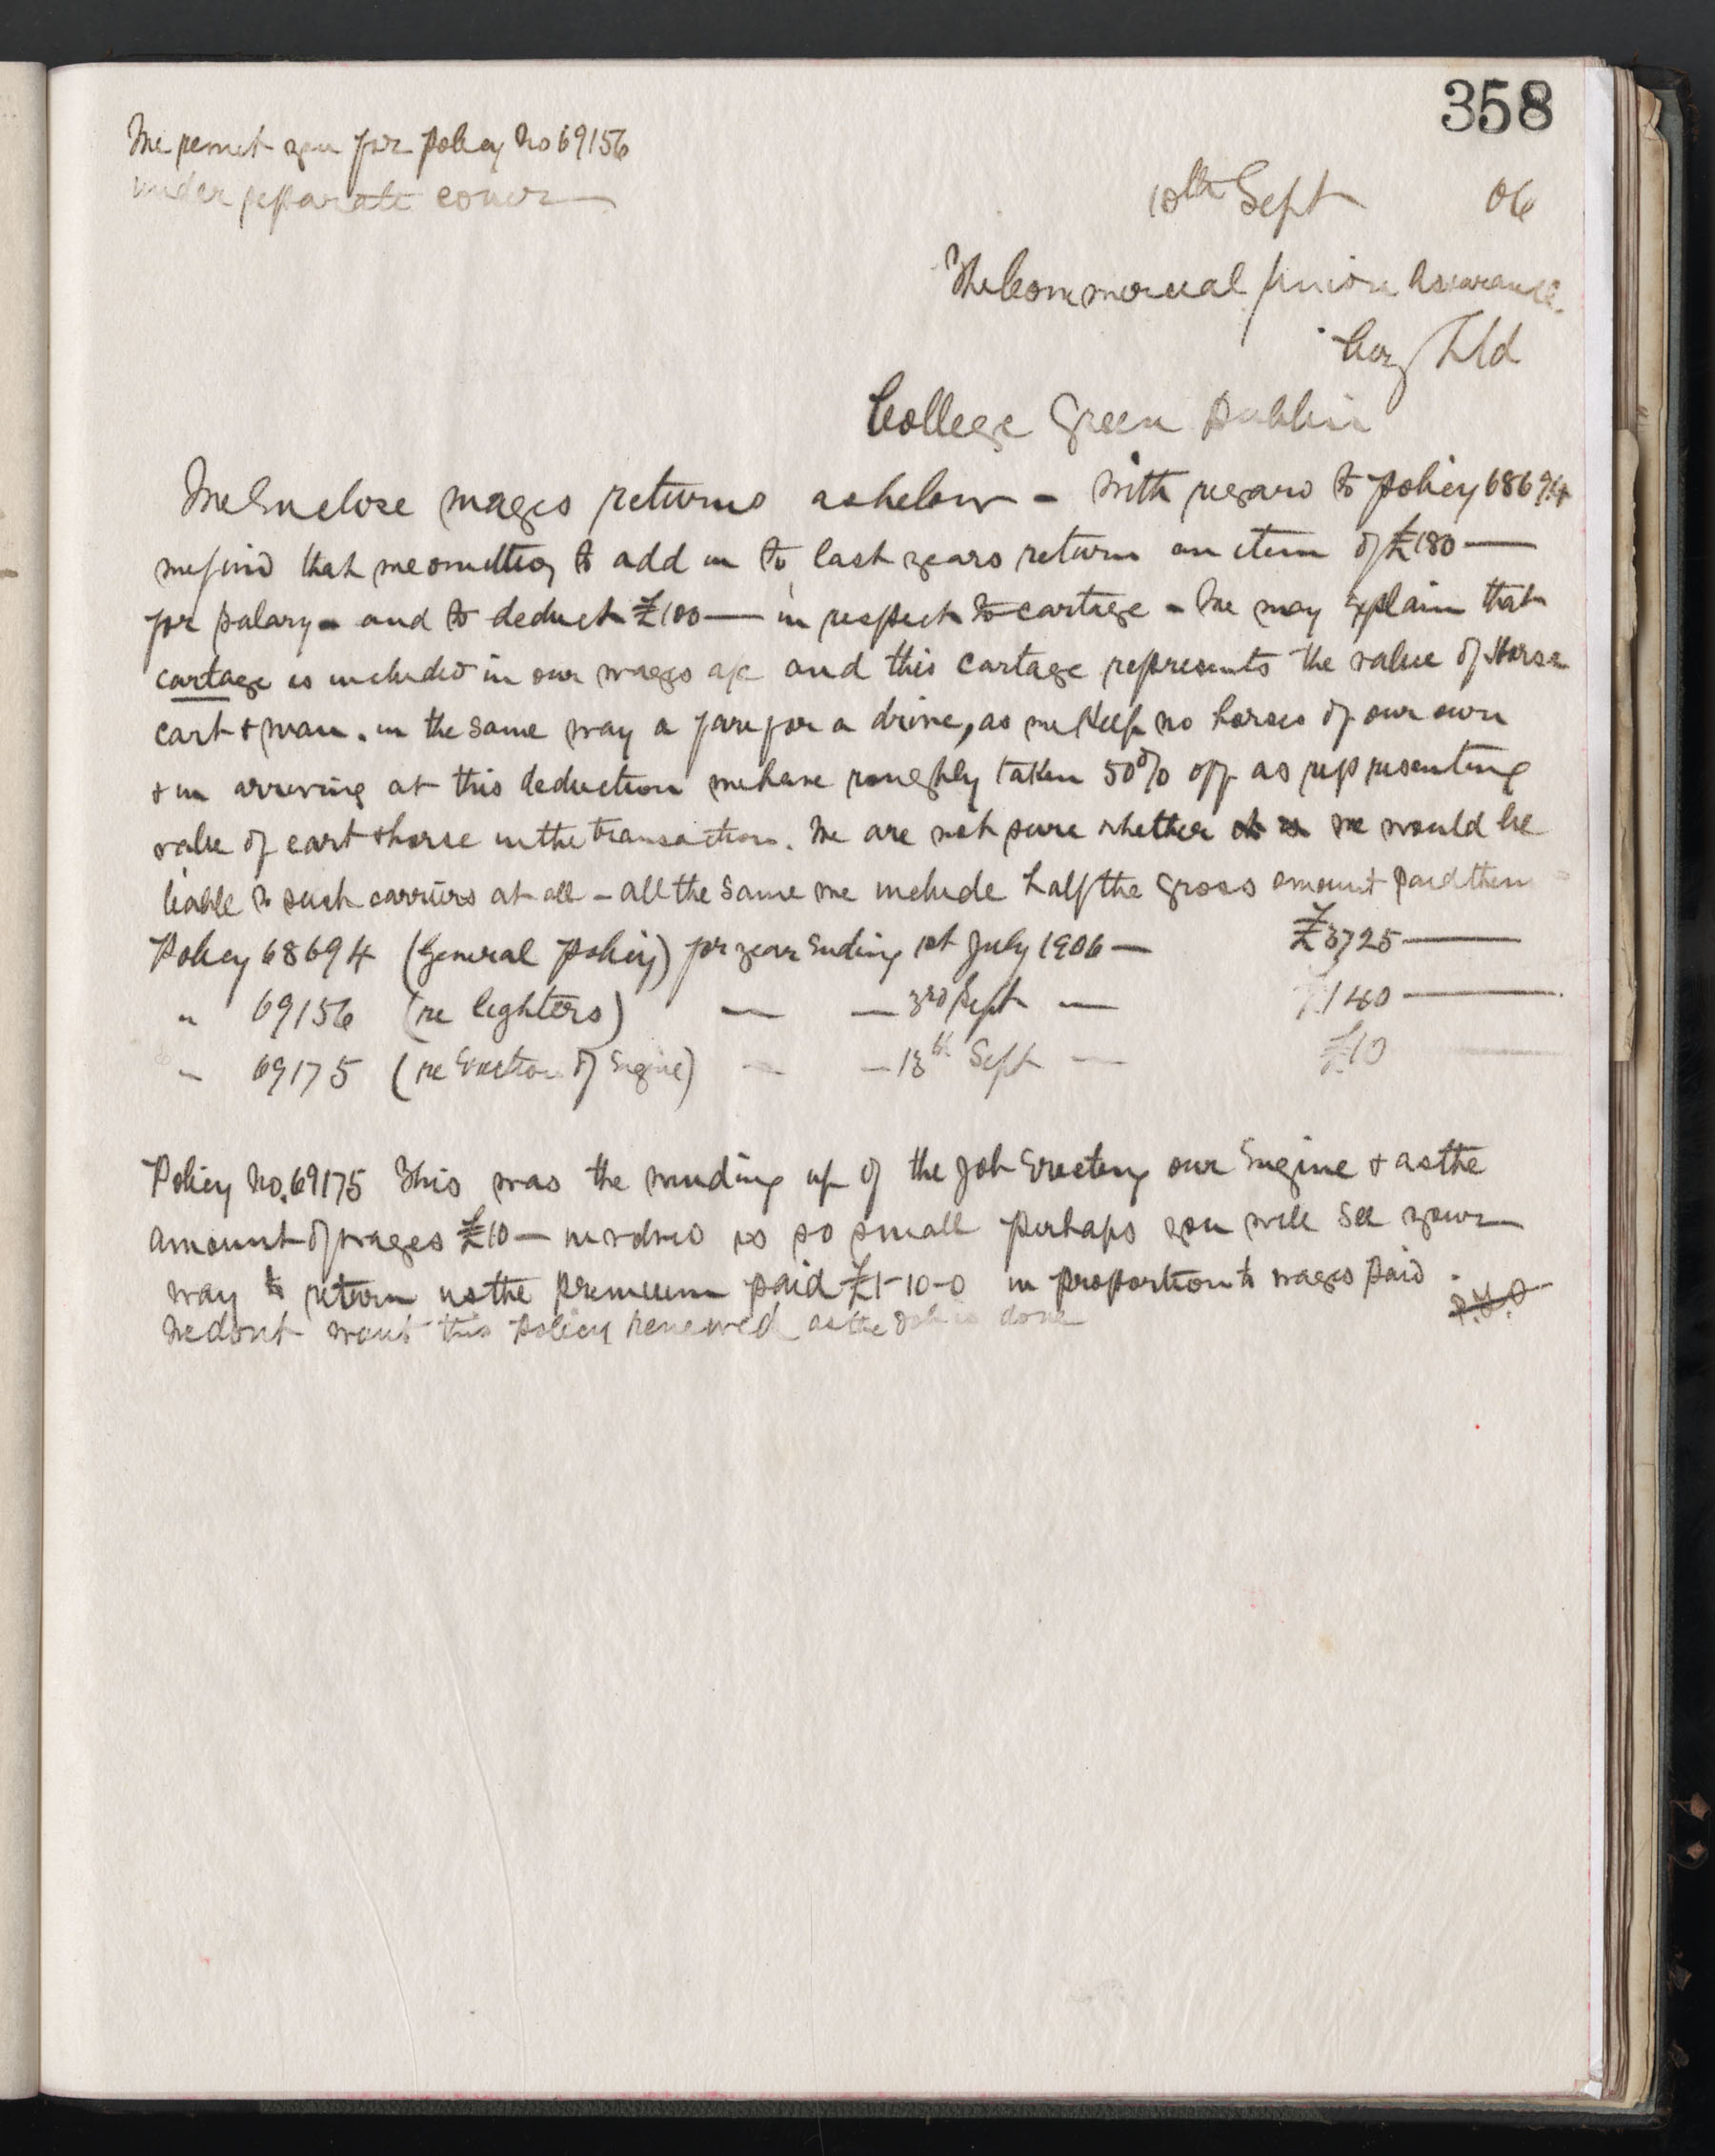 358
We remit you for policy No 69156
under separate cover
10th Sept 06
The Commercial Union Assurance
Coy Ltd
College Green Dublin
We Enclose wages returns as below - With regard to policy 68694
we find that we omitted to add in to last years return an item of £180 —
for salary - and to deduct £100 — in respect to cartage - We may Explain that
cartage is included in our wages a/c and this cartage represents the value of Horse
cart & man. in the same way a fare for a drive, as we Keep no horses of our own
& in arriving at this deduction we have roughly taken 50% off as representing
value of cart & horse in the transaction. We are not sure whether we would be
liable to such carriers at all - all the same we include half the gross amount paid them
Policy 68694 (General Policy) for year Ending 1st July 1906 — £3725 —
" 69156 (re lighters) — — 3rd Sept — £140 —
" 69175 (re Erection of Engine) — — 13th Sept — £10 —
Policy No. 69175 This was the winding up of the Job Erecting our Engine & as the
amount of wages £10 — involved is so small perhaps you will See your
way to return us the premium paid £1-10-0 in proportion to wages paid.
We dont want this policy renewed as the Job is done